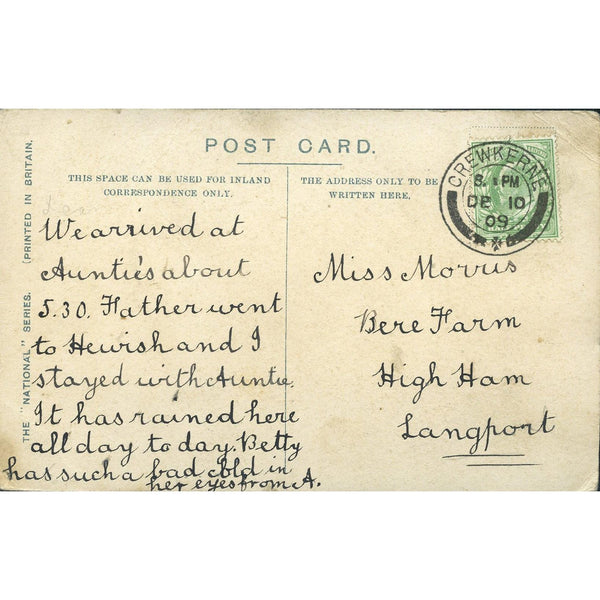 POST CARD.
THIS SPACE CAN BE USED FOR INLAND
CORRESPONDENCE ONLY.
THE ADDRESS ONLY TO BE
WRITTEN HERE.
CREWKERNE
PM
DE 10
09
THE "NATIONAL" SERIES. (PRINTED IN BRITAIN.
We arrived at
Auntie's about
5.30. Father went
to Hewish and I
stayed with Auntie.
It has rained here
all day to day. Betty
has such a bad cold in
her eyes from A.
Miss Morris
Bere Farm
High Ham
Langport